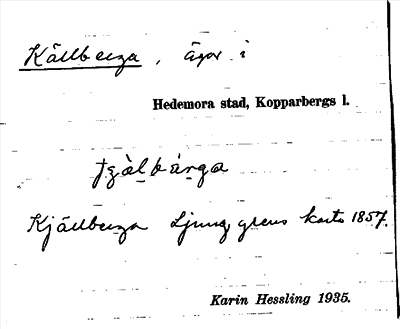 Källberga, ägor i
Hedemora stad, Kopparbergs l.
Kjällberga Ljunggrens karta 1857.
Karin Hessling 1935.